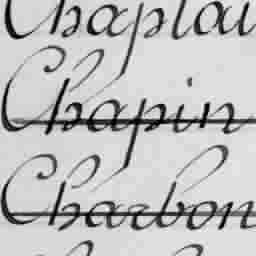 Chaplai
Chapin
Charbon